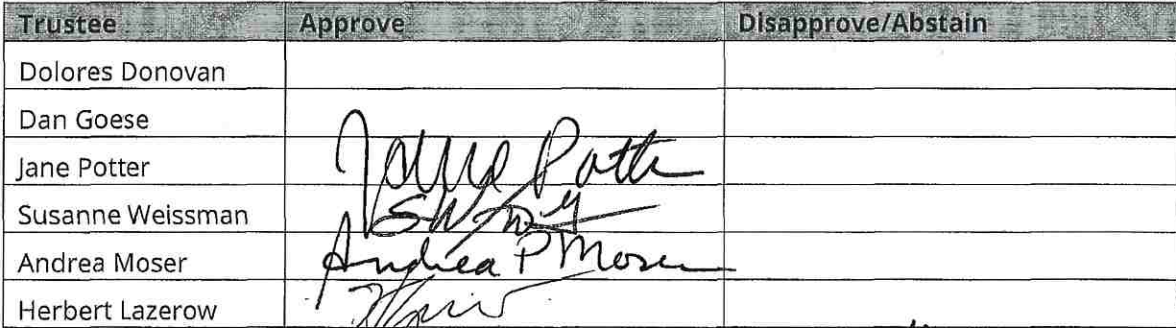 Trustee Approve Disapprove/Abstain
Dolores Donovan
Dan Goese
Jane Potter Jane Potter
Susanne Weissman
Andrea Moser Andrea P Moser
Herbert Lazerow